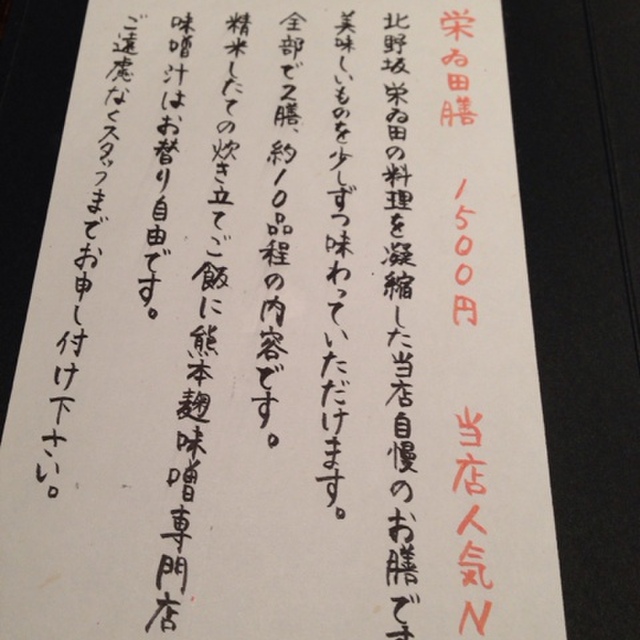 栄ゐ田膳 1500円 当店人気N
北野坂 栄ゐ田の料理を凝縮した当店自慢のお膳です
美味しいものを少しずつ味わっていただけます。
全部で2膳、約10品程の内容です。
精米したての炊き立てご飯に熊本麹味噌専門店
味噌汁はお替り自由です。
ご遠慮なくスタッフまでお申し付け下さい。